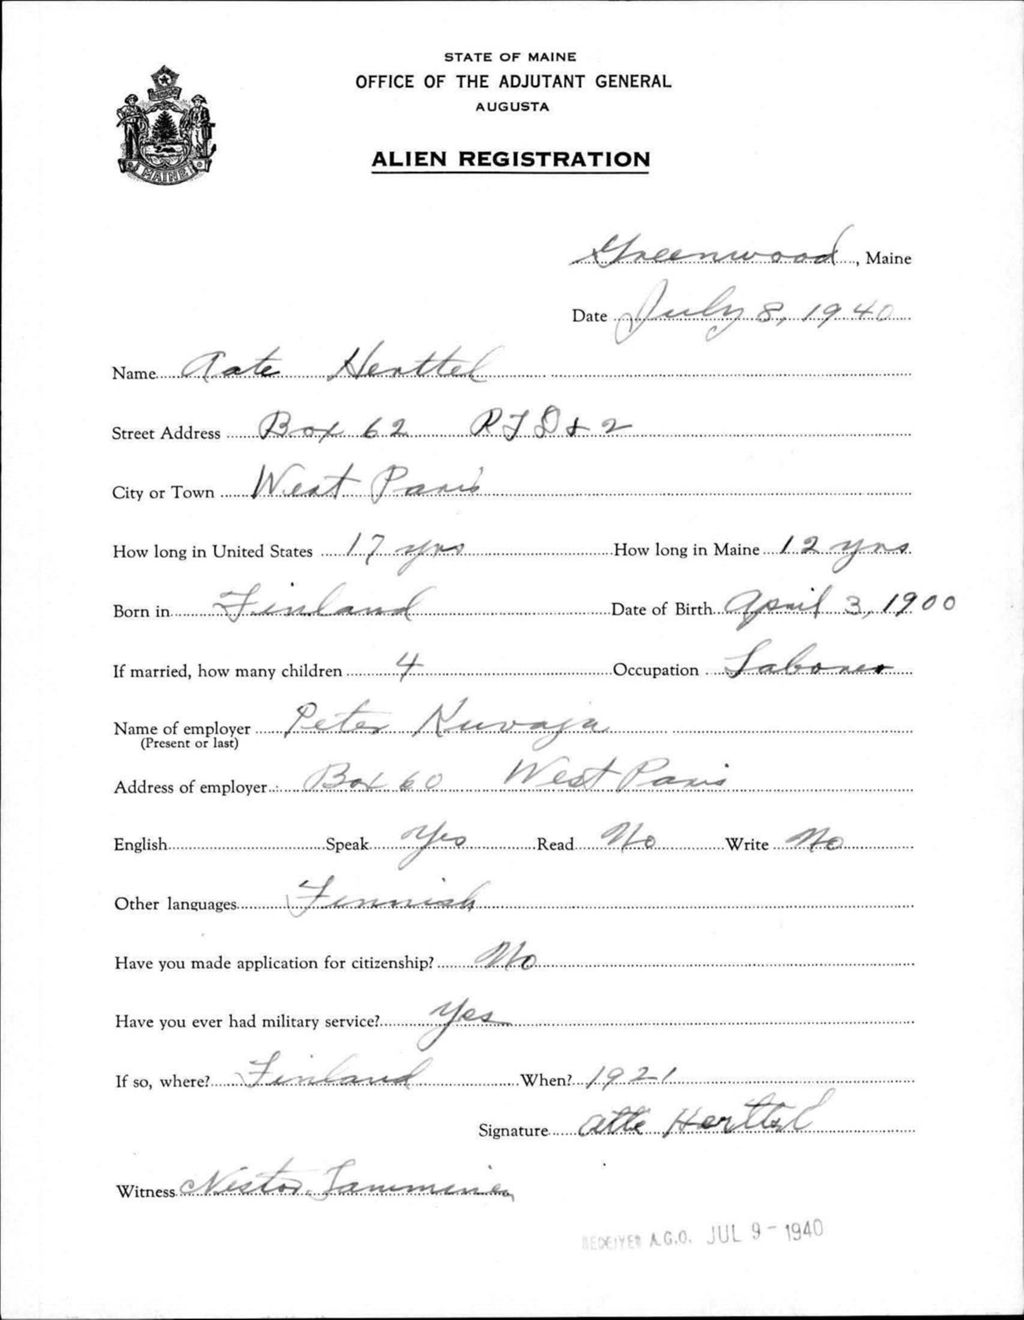 STATE OF MAINE
OFFICE OF THE ADJUTANT GENERAL
AUGUSTA
ALIEN REGISTRATION
MAINE
Greenwood, Maine
Date July 8, 1940
Name Aate Herttel
Street Address Box 62 RFD # 2
City or Town West Paris
How long in United States 17 yrs How long in Maine 12 yrs
Born in Finland Date of Birth April 3, 1900
If married, how many children 4 Occupation Laborer
Name of employer Peter Kuvaja
(Present or last)
Address of employer Box 60 West Paris
English Speak Yes Read No Write No
Other languages Finnish
Have you made application for citizenship? No
Have you ever had military service? Yes
If so, where? Finland When? 1921
Signature Atte Herttel
Witness Nestor Tamminen
RECEIVED A.G.O. JUL 9 - 1940